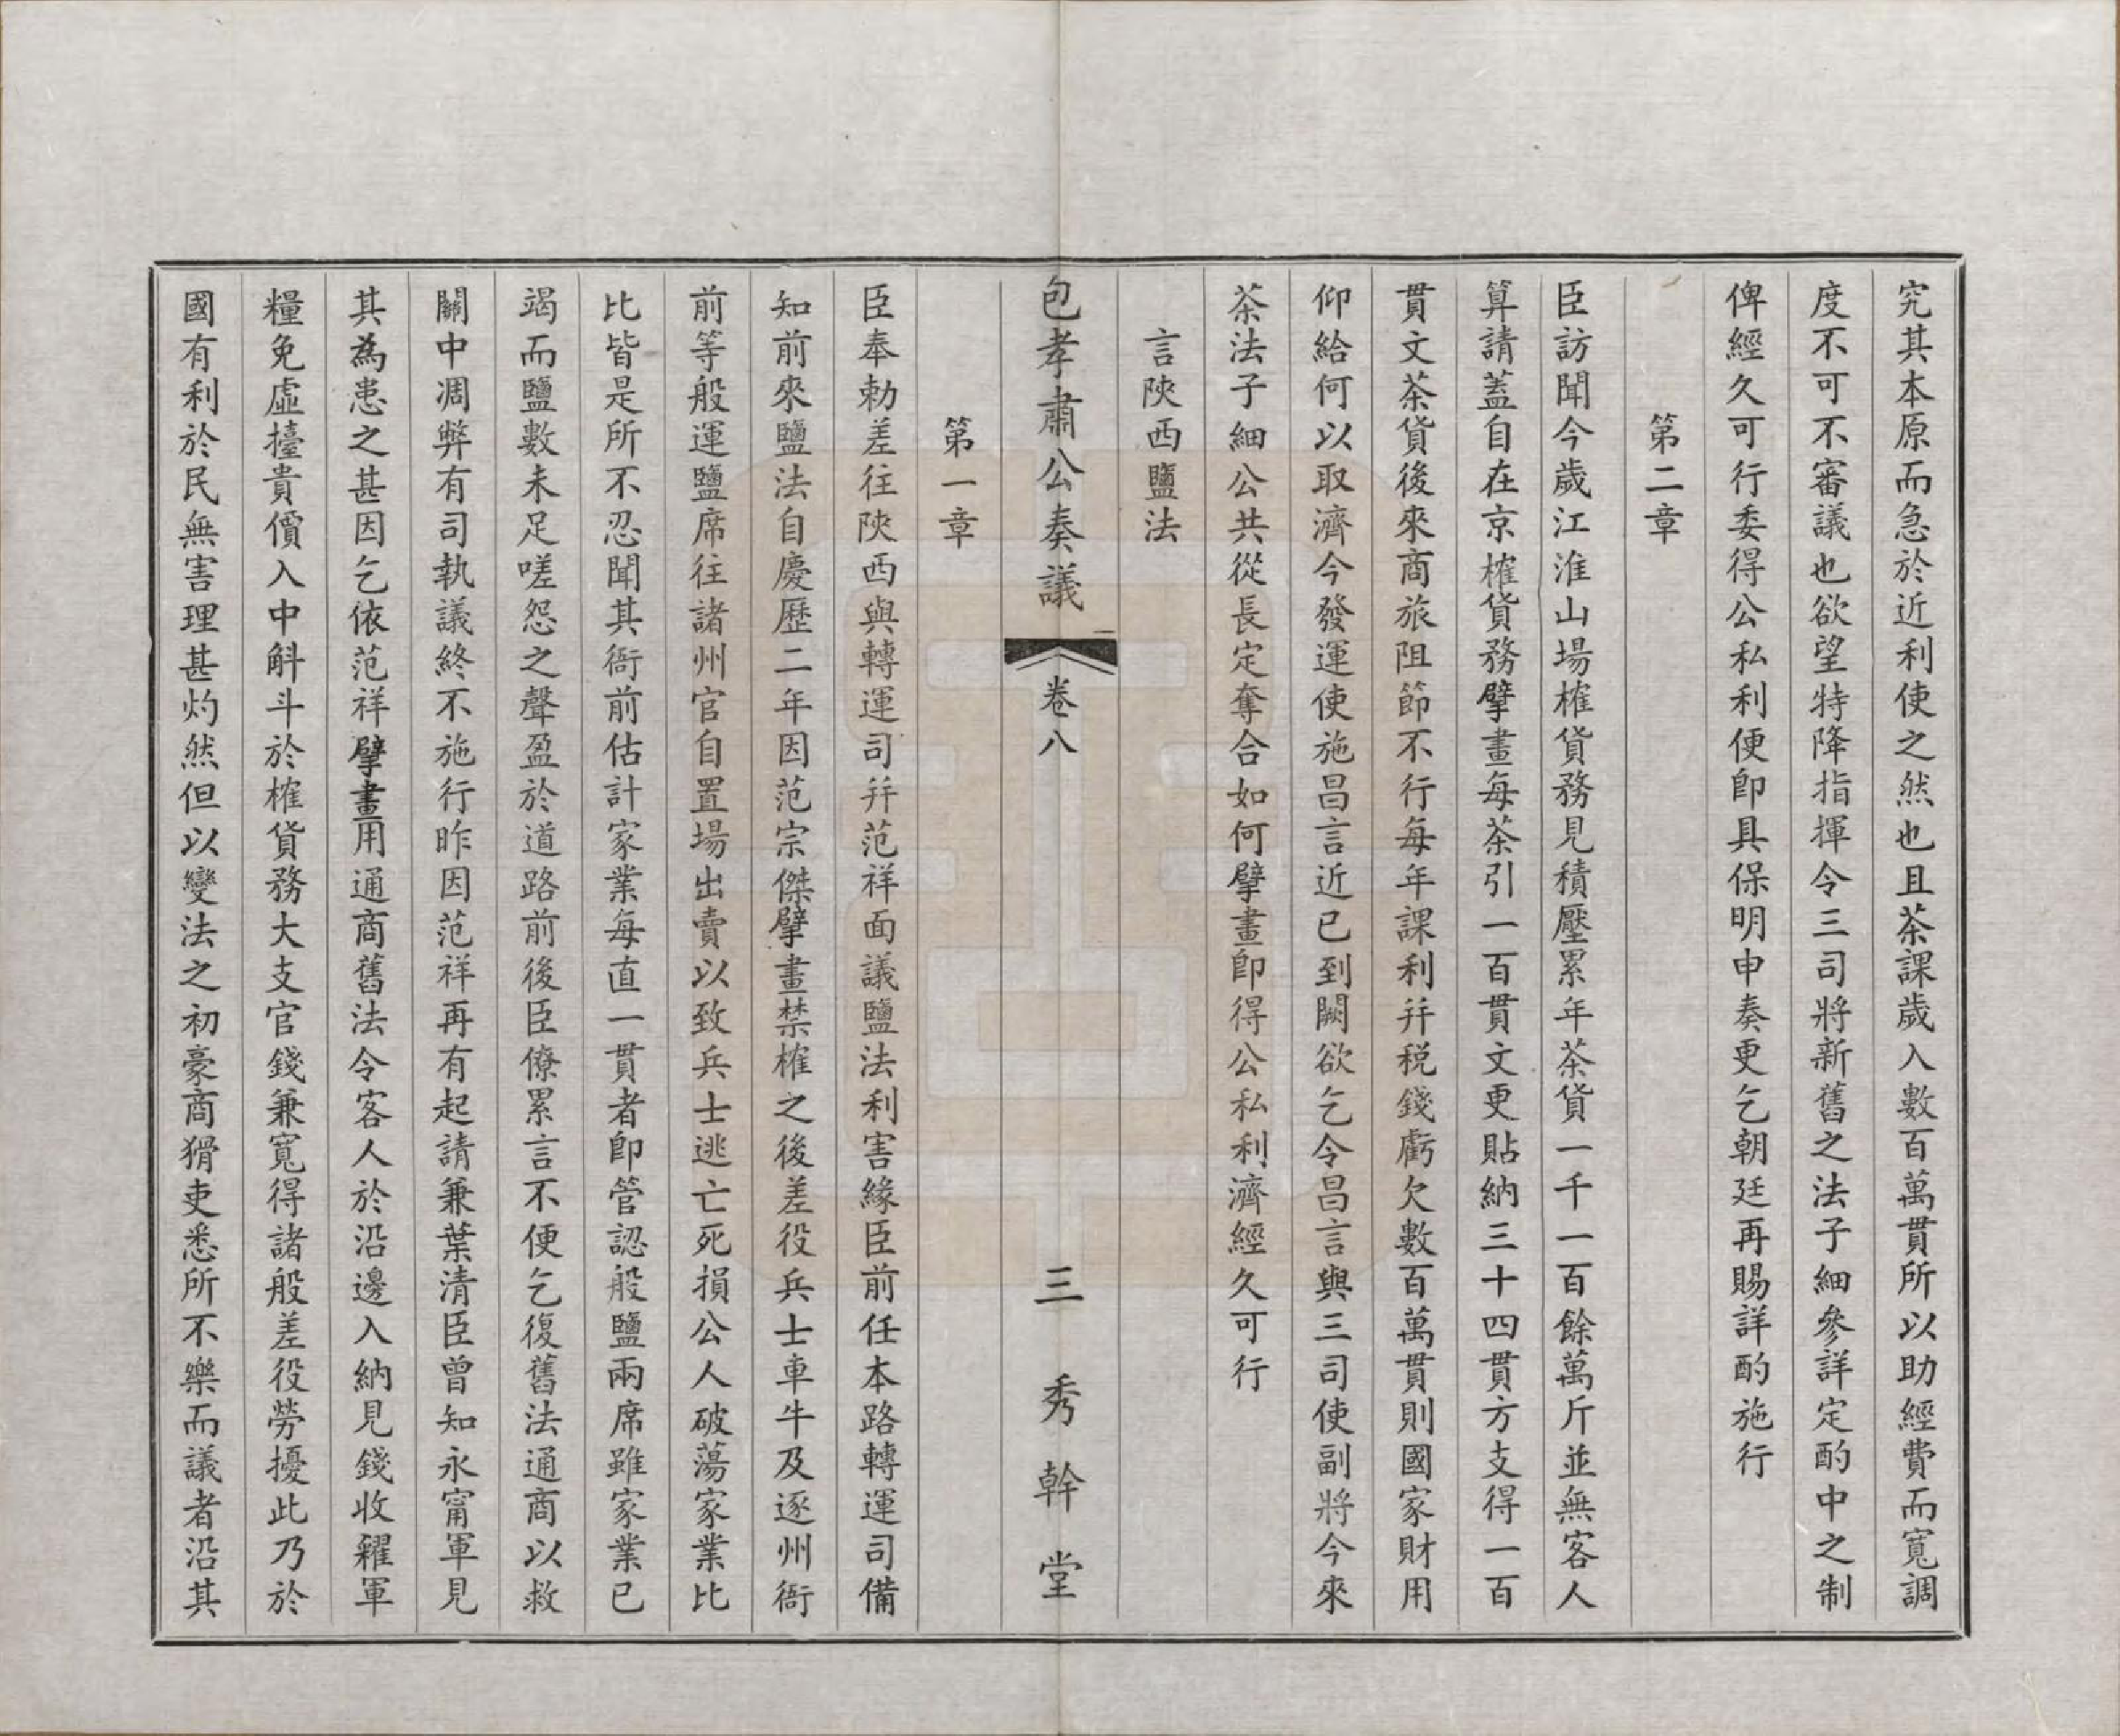 究其本原而急於近利使之然也且茶課歲入數百萬貫所以助經費而寬調
度不可不審議也欲望特降指揮令三司將新舊之法子細參詳定酌中之制
俾經久可行委得公私利便卽具保明申奏更乞朝廷再賜詳酌施行
第二章
臣訪聞今歲江淮山場榷貨務見積壓累年茶貨一千一百餘萬斤並無客人
算請蓋自在京榷貨務擘畫每茶引一百貫文更貼納三十四貫方支得一百
貫文茶貨後來商旅阻節不行每年課利幷税錢虧欠數百萬貫則國家財用
仰給何以取濟今發運使施昌言近已到闕欲乞令昌言與三司使副將今來
茶法子細公共從長定奪合如何擘畫卽得公私利濟經久可行
言陝西鹽法
包孝肅公奏議
卷八
三
秀幹堂
第一章
臣奉勅差往陝西與轉運司幷范祥面議鹽法利害緣臣前任本路轉運司備
知前來鹽法自慶歷二年因范宗傑擘畫禁榷之後差役兵士車牛及逐州衙
前等般運鹽席往諸州官自置場出賣以致兵士逃亡死損公人破蕩家業比
比皆是所不忍聞其衙前估計家業每直一貫者卽管認般鹽兩席雖家業已
竭而鹽數未足嗟怨之聲盈於道路前後臣僚累言不便乞復舊法通商以救
關中凋弊有司執議終不施行昨因范祥再有起請兼葉清臣曾知永甯軍見
其為患之甚因乞依范祥擘畫用通商舊法令客人於沿邊入納見錢收糴軍
糧免虛擡貴價入中斛斗於榷貨務大支官錢兼寬得諸般差役勞擾此乃於
國有利於民無害理甚灼然但以變法之初豪商猾吏悉所不樂而議者沿其